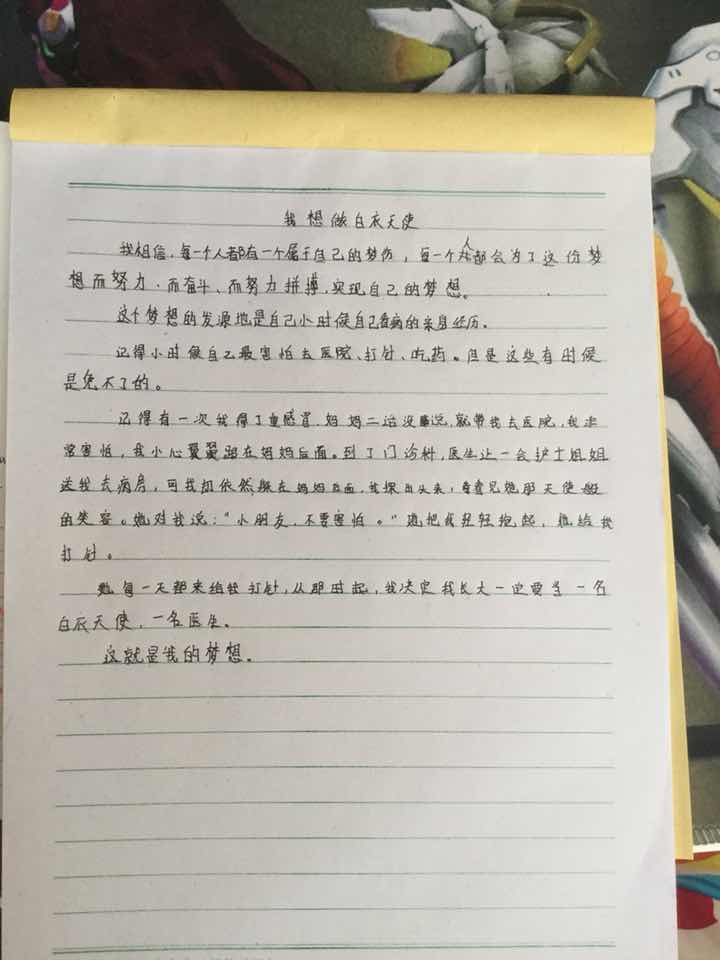 我想做白衣天使
我相信,每一个人都有一个属于自己的梦伤,每一个人都会为了这份梦
想而努力.而奋斗、而努力拼搏,实现自己的梦想。
这个梦想的发源地是自己小时候自己看病的亲身经历。
记得小时候自己最害怕去医院、打针、吃药。但是这些有时候
是免不了的。
记得有一次我得了重感冒,妈妈二话没说,就带我去医院,我非
常害怕,我小心翼翼跟在妈妈后面。到了门诊科,医生让一会护士姐姐
送我去病房,可我却依然躲在妈妈后面,我探出头来,看见她那天使般
的笑容。她对我说:“小朋友,不要害怕。”她把我轻轻抱起,她给我
打针。
她每一天都来给我打针,从那时起,我决定我长大一定要当一名
白衣天使,一名医生。
这就是我的梦想。